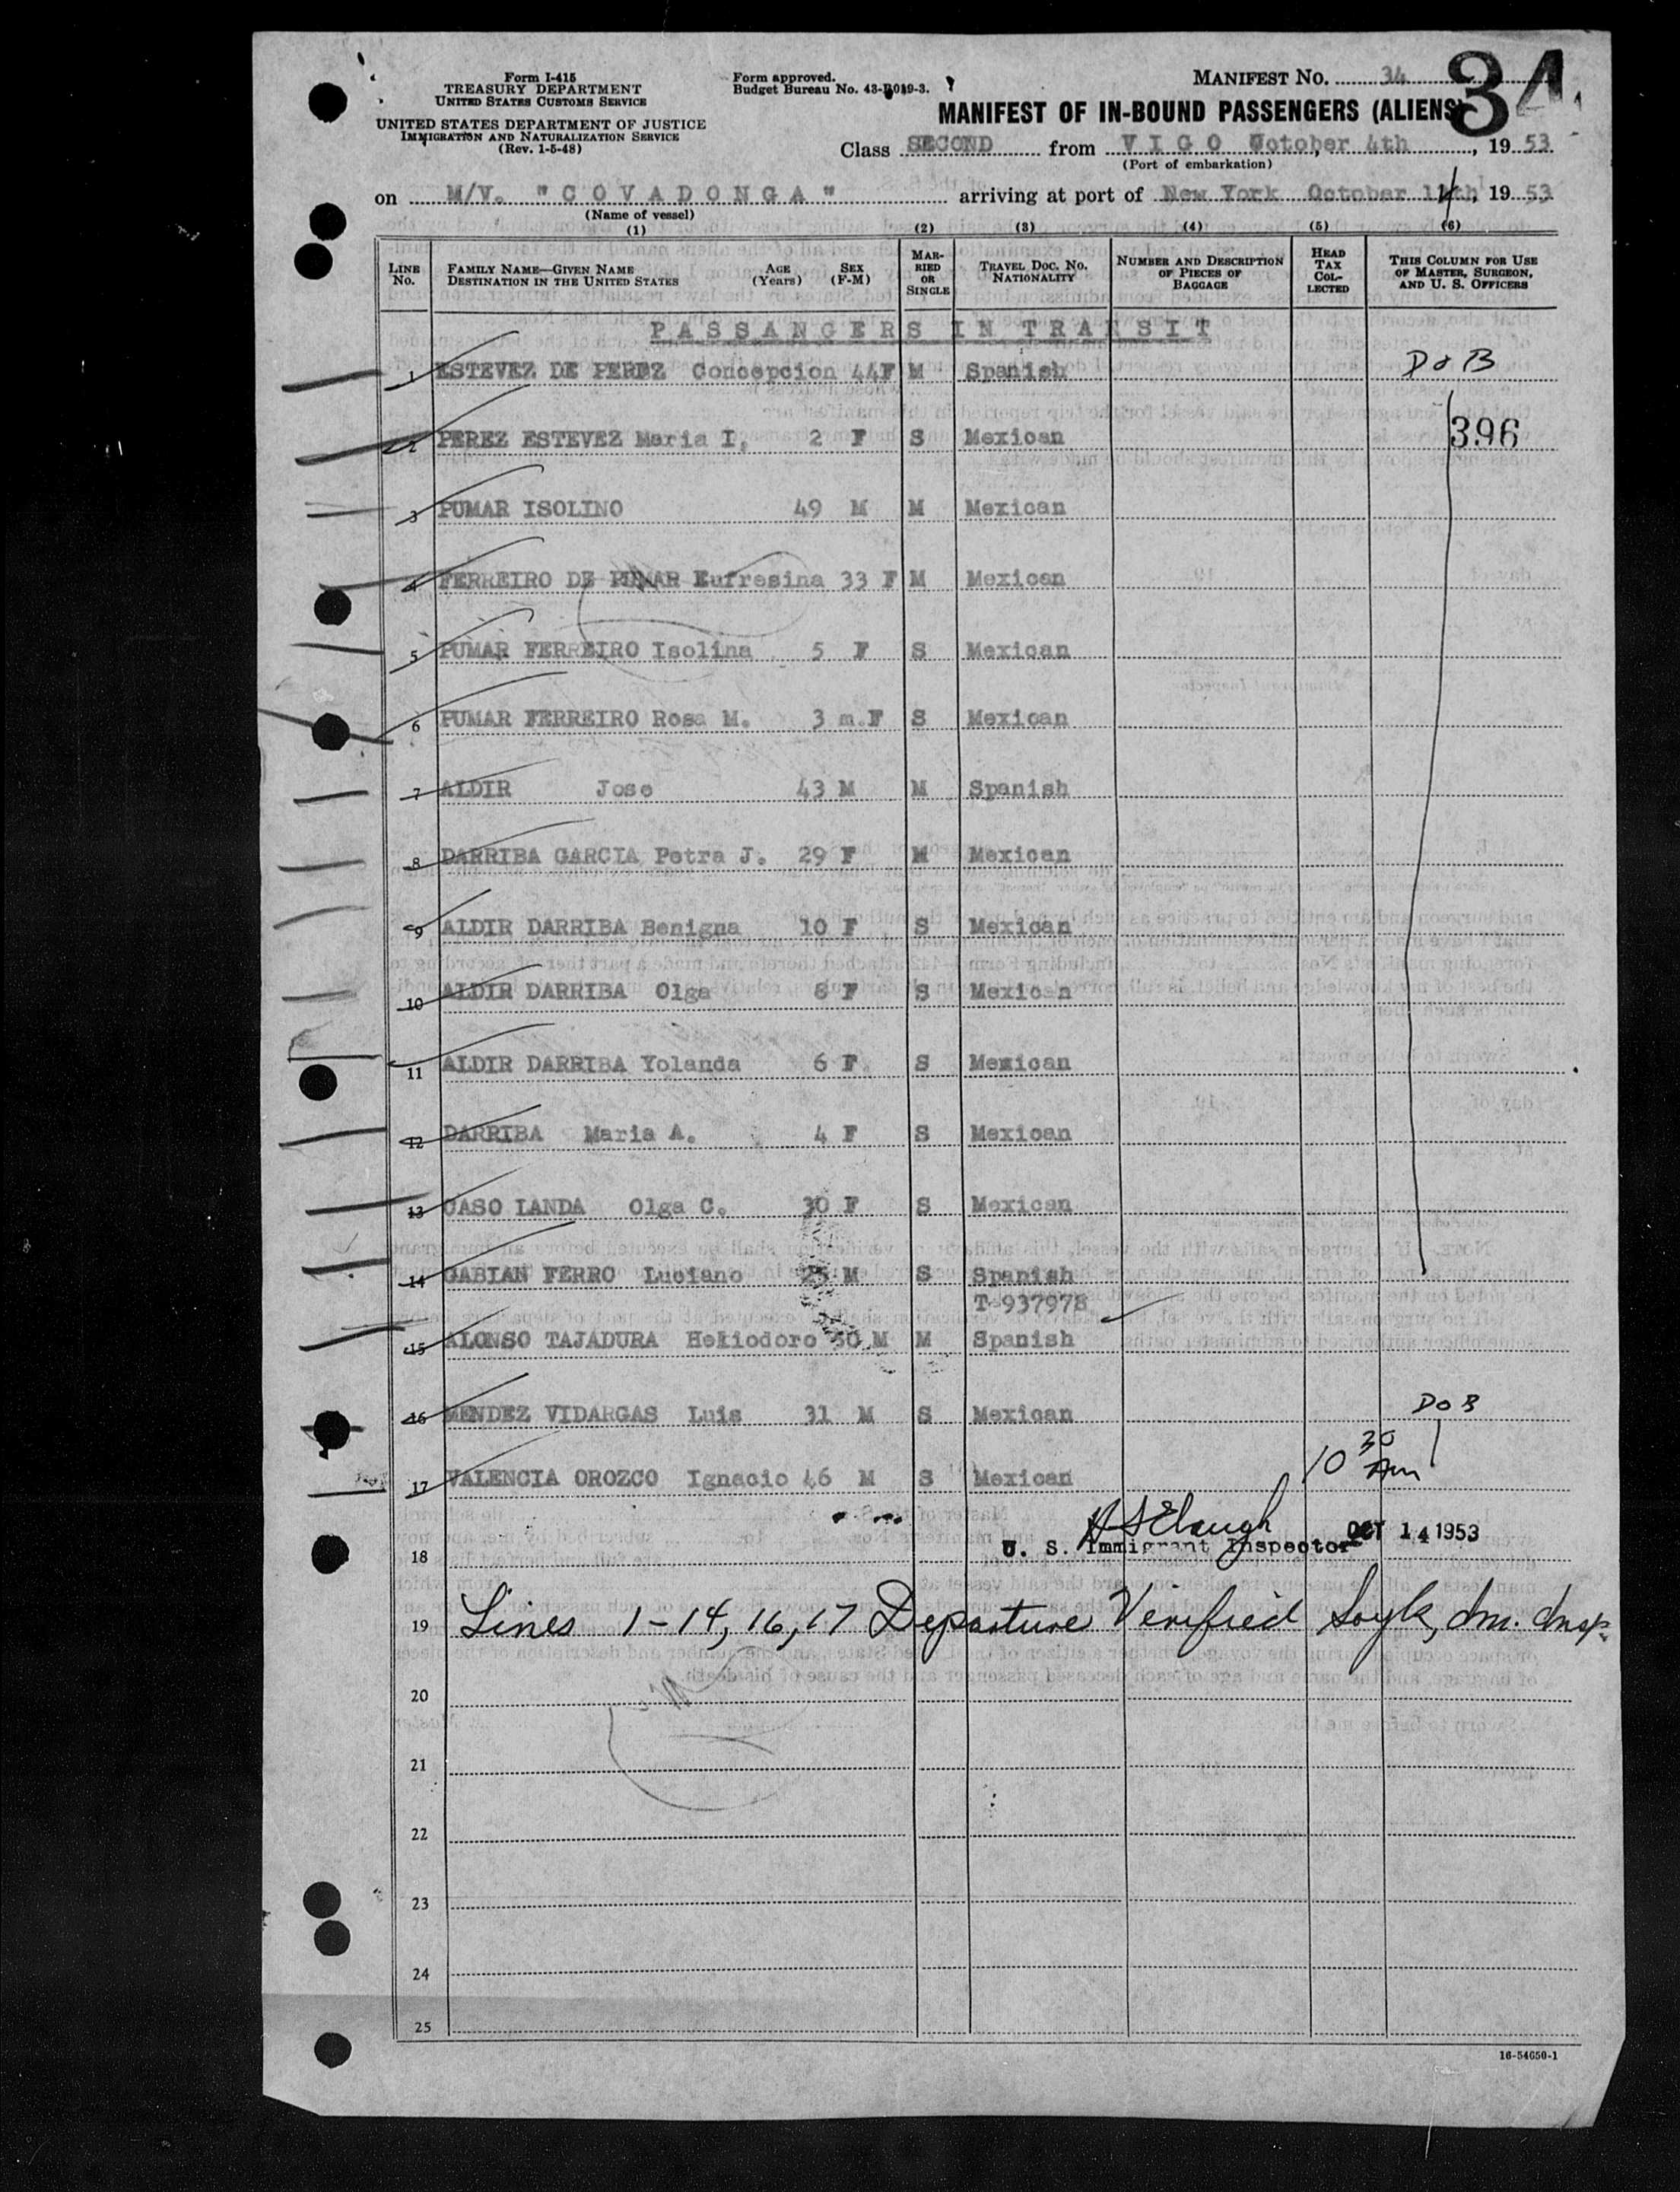 Form I-415
TREASURY DEPARTMENT
UNITED STATES CUSTOMS SERVICE
UNITED STATES DEPARTMENT OF JUSTICE
IMMIGRATION AND NATURALIZATION SERVICE
(Rev. 1-5-48)
Form approved.
Budget Bureau No. 43-R019-3.
MANIFEST NO. 34
34
MANIFEST OF IN-BOUND PASSENGERS (ALIENS)
Class SECOND from VIGO October 4th, 1953
(Port of embarkation)
on M/V. "COVADONGA" arriving at port of New York October 14th, 1953
(Name of vessel)
(1) (2) (3) (4) (5) (6)
LINE NO. FAMILY NAME—GIVEN NAME DESTINATION IN THE UNITED STATES AGE (Years) SEX (F-M) MARRIED OR SINGLE TRAVEL DOC. NO. NATIONALITY NUMBER AND DESCRIPTION OF PIECES OF BAGGAGE HEAD TAX COLLECTED THIS COLUMN FOR USE OF MASTER, SURGEON, AND U. S. OFFICERS
PASSANGERS IN TRANSIT
1 ESTEVEZ DE PEREZ Concepcion 44 F M Spanish D o B
2 PEREZ ESTEVEZ Maria I. 2 F S Mexican 396
3 PUMAR ISOLINO 49 M M Mexican
4 FERREIRO DE PUMAR Eufresina 33 F M Mexican
5 PUMAR FERREIRO Isolina 5 F S Mexican
6 PUMAR FERREIRO Rosa M. 3 m. F S Mexican
7 ALDIR Jose 43 M M Spanish
8 DARRIBA GARCIA Petra J. 29 F M Mexican
9 ALDIR DARRIBA Benigna 10 F S Mexican
10 ALDIR DARRIBA Olga 8 F S Mexican
11 ALDIR DARRIBA Yolanda 6 F. S Mexican
12 DARRIBA Maria A. 4 F S Mexican
13 CASO LANDA Olga C. 30 F S Mexican
14 GABIAN FERRO Luciano 25 M S Spanish
T-937978
15 ALONSO TAJADURA Heliodoro 50 M M Spanish
16 MENDEZ VIDARGAS Luis 31 M S Mexican D o B
17 VALENCIA OROZCO Ignacio 46 M S Mexican 10 30 Am
U. S. Immigrant Inspector OCT 14 1953
18
19 Lines 1-14, 16, 17 Departure Verified
20
21
22
23
24
25
16-54650-1